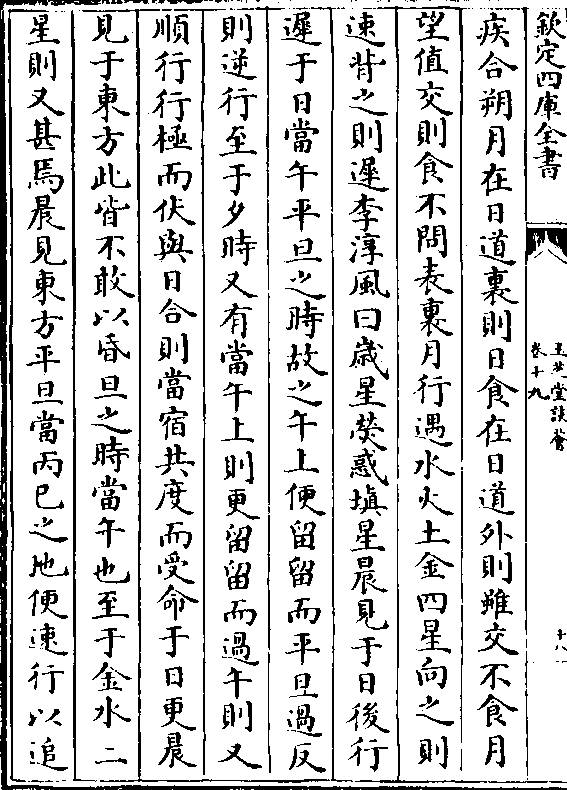 欽定四庫全書
玉芝堂談薈
卷十九
十八
疾合朔月在日道裏則日食在日道外則雖交不食月
望值交則食不問表裏月行遇水火土金四星向之則
速背之則遲李淳風曰歲星熒惑塡星晨見于日後行
遲于日當午平旦之時故之午上便留留而平旦過反
則逆行至于夕時又有當午上則更留留而過午則又
順行行極而伏與日合則當宿共度而受命于日更晨
見于東方此皆不敢以昏旦之時當午也至于金水二
星則又甚焉晨見東方平旦當丙巳之地便速行以追